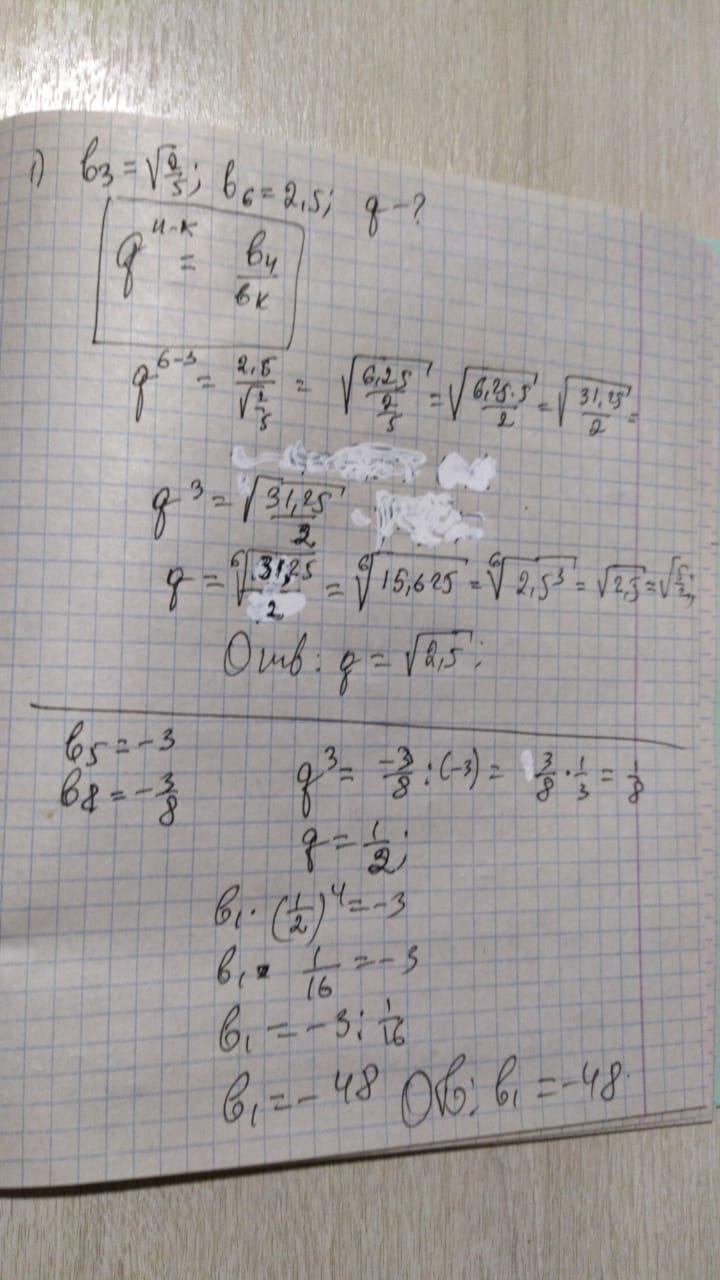 1) b₃ = √(2/5); b₆ = 2,5; q – ?
qⁿ⁻ᵏ = bₙ/bₖ
q⁶⁻³ = 2,5/√(2/5) = √(6,25/(2/5)) = √(6,25·5/2) = √(31,25/2) =
q³ = √(31,25/2)
q = ⁶√(31,25/2) = ⁶√15,625 = ⁶√2,5³ = √2,5 = √(5/2);
Отв: q = √2,5;
b₅ = –3
b₈ = –3/8
q³ = –3/8 : (–3) = 3/8 · 1/3 = 1/8
q = 1/2;
b₁ · (1/2)⁴ = –3
b₁ · 1/16 = –3
b₁ = –3 : 1/16
b₁ = –48 Ов: b₁ = –48.